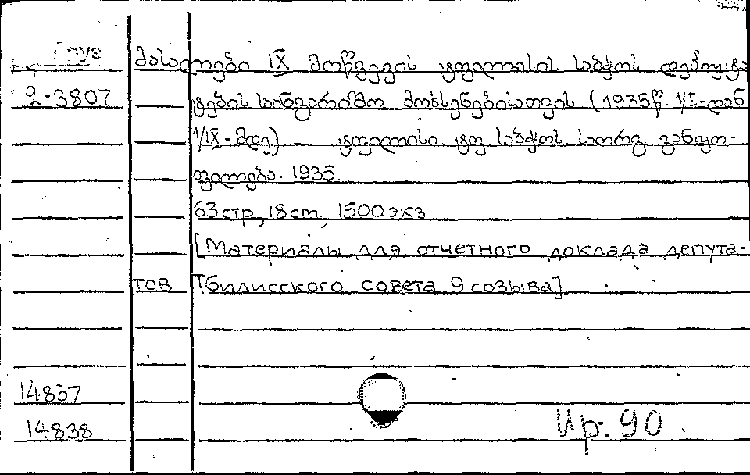 მასალები IX მოწვევის ტფილისის საბჭოს დეპუტა
2-3807 ტების საანგარიშო მოხსენებისათვის (1935წ. 1/I-დან
1/IX-მდე) ტფილისი, ტფ. საბჭოს საორგ. განყო-
ფილება. 1935
63стр., 18см, 1500экз
[Материалы для отчетного доклада депута-
тов Тбилисского совета 9 созыва]
14837
14838
Ир. 90